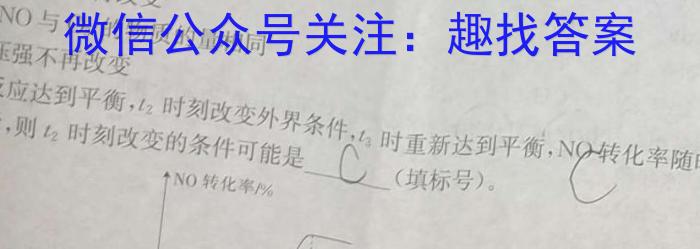 微信公众号关注：趣找答案
NO与的物质的量相同
压强不再改变
应达到平衡,t₂ 时刻改变外界条件,t₃ 时重新达到平衡,NO转化率随
,则 t₂ 时刻改变的条件可能是 C (填标号)。
NO 转化率/%